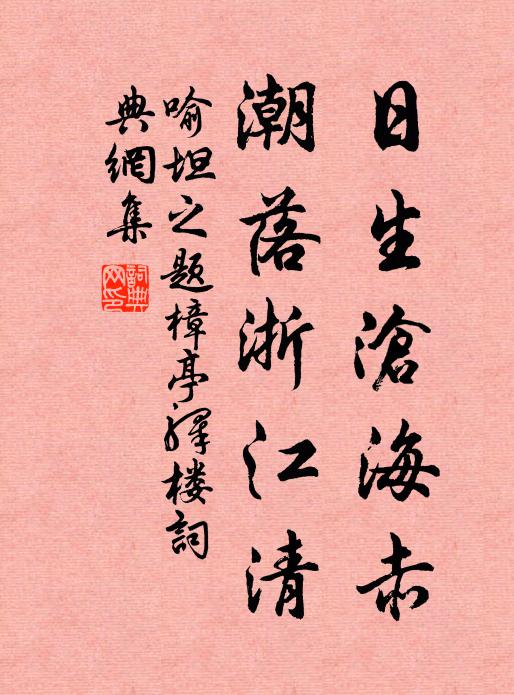 日生滄海赤
潮落浙江清
喻坦之題樟亭驛樓詞
典網集
詞典
网印